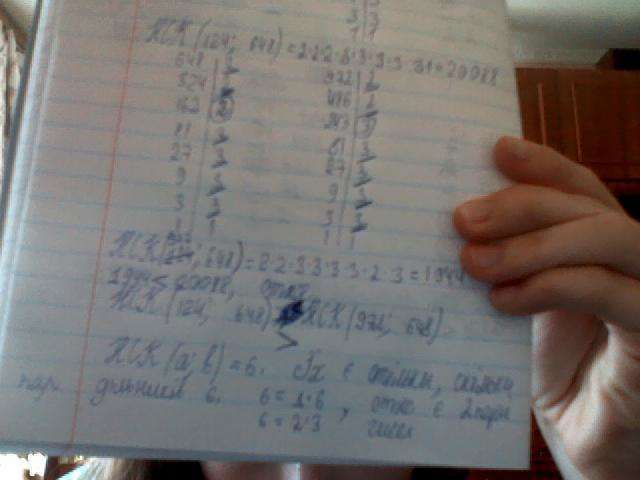 3 3
1 1
НСК (124; 648) = 2·2·2·3·3·3·3·31 = 20088
648 2 972 2
324 2 486 2
162 2 243 3
81 3 81 3
27 3 27 3
9 3 9 3
3 3 3 3
1 1
НСК (972; 648) = 2·2·3·3·3·3·2·3 = 1944
1944 < 20088, отже
НСК (124; 648) > НСК (972; 648)
НСК (a; b) = 6. Їх є стільки, скільки
пар дільників 6. 6 = 1·6, отже є 2 пари
6 = 2·3 чисел